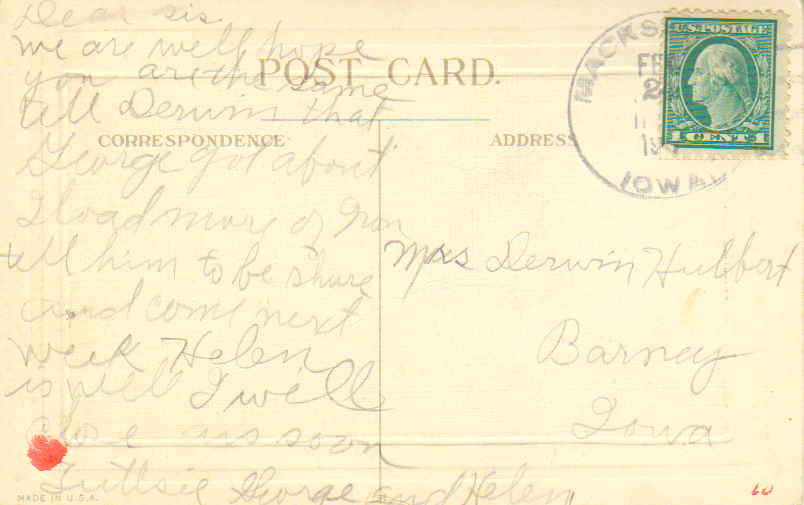 Dear sis.
we are well hope
you are the same
tell Derwin that
George got about
1 load more of Iron
tell him to be shure
and come next
week Helen
is well I will
close ans soon
Tuttsie George and Helen
POST CARD.
CORRESPONDENCE
ADDRESS
MACKS
FE
2
IOWA
U.S. POSTAGE
1 CENT 1
Mrs Derwin Hubbert
Barney
Iowa
MADE IN U.S.A.